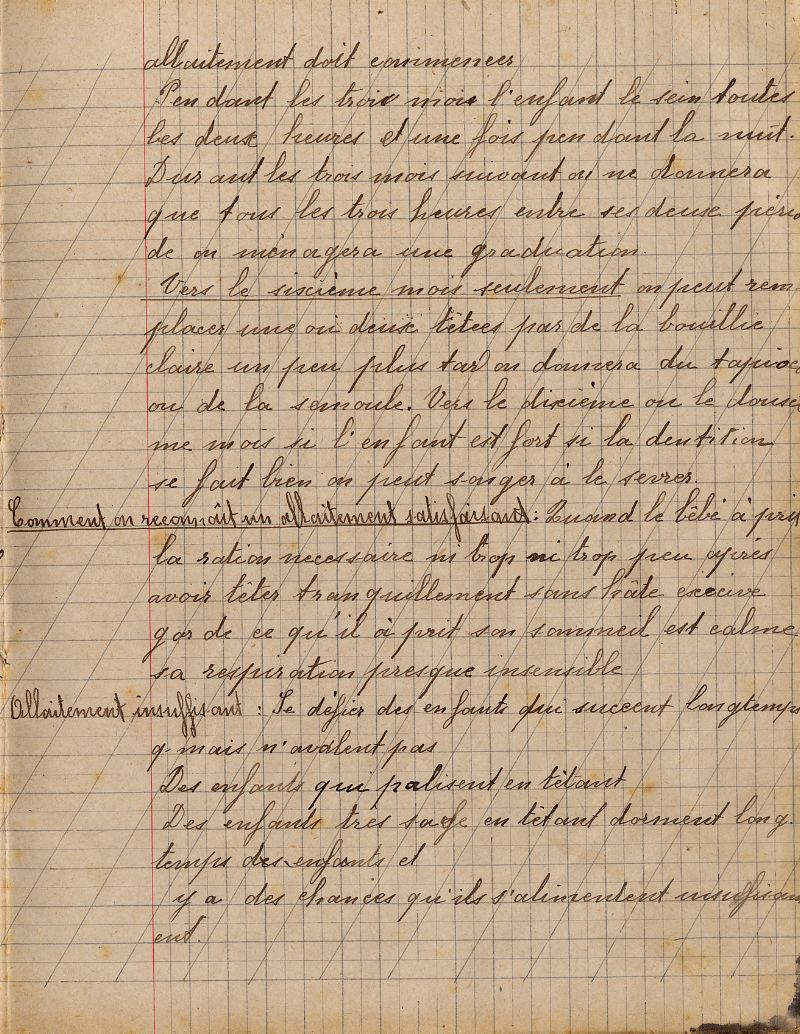 allaitement doit commencer
Pendant les trois mois l'enfant le sein toutes
les deux heures et une fois pendant la nuit.
Durant les trois mois suivant on ne donnera
que tous les trois heures entre ses deuse pério
de on ménagera une graduation.
Vers le sixième mois seulement on peut rem
placer une ou deuse têtées par de la bouillie
claire un peu plus tard on donnera du tapioc
ou de la semoule. Vers le dixième ou le dousiè
me mois si l'enfant est fort si la dentition
se fait bien on peut songer à le sevrer.
Comment on reconnaît un allaitement satisfaisant : Quand le bébé à pris
la ration necessaire ni trop ni trop peu après
avoir têter tranquillement sans hâte excecive
gar de ce qu'il à prit son sommeil est calme
sa respiration presque insensible
Allaitement insuffisant : Se défier des enfants qui succent longtemps
mais n'avalent pas
Des enfants qui palisent en têtant
Des enfants très sage en têtant dorment long.
temps des enfants et
y a des chances qu'ils s'alimentent insuffisam
ent.